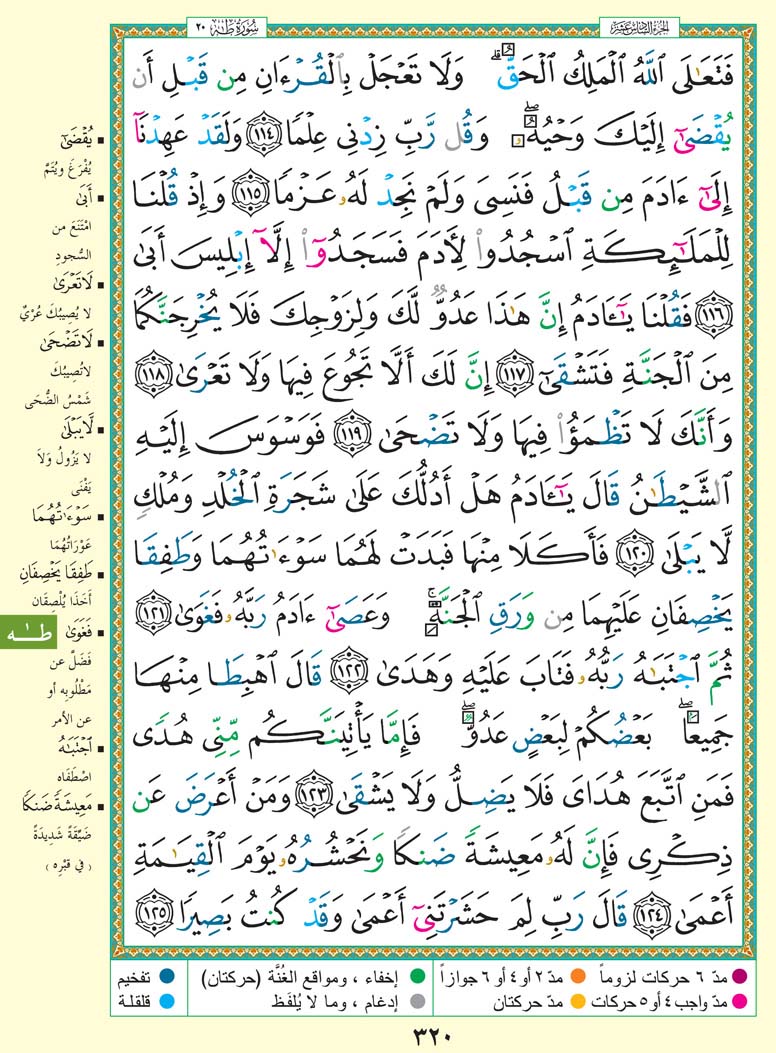 سُورَةُ طٰهٰ ٢٠
الجزء السادس عشر
فَتَعَٰلَى ٱللَّهُ ٱلْمَلِكُ ٱلْحَقُّ ۗ وَلَا تَعْجَلْ بِٱلْقُرْءَانِ مِن قَبْلِ أَن
يُقْضَىٰٓ إِلَيْكَ وَحْيُهُۥ ۖ وَقُل رَّبِّ زِدْنِى عِلْمًا ﴿١١٤﴾ وَلَقَدْ عَهِدْنَآ
إِلَىٰٓ ءَادَمَ مِن قَبْلُ فَنَسِىَ وَلَمْ نَجِدْ لَهُۥ عَزْمًا ﴿١١٥﴾ وَإِذْ قُلْنَا
لِلْمَلَٰٓئِكَةِ ٱسْجُدُوا۟ لِأَدَمَ فَسَجَدُوٓا۟ إِلَّآ إِبْلِيسَ أَبَىٰ
﴿١١٦﴾ فَقُلْنَا يَٰٓـَٔادَمُ إِنَّ هَٰذَا عَدُوٌّ لَّكَ وَلِزَوْجِكَ فَلَا يُخْرِجَنَّكُمَا
مِنَ ٱلْجَنَّةِ فَتَشْقَىٰٓ ﴿١١٧﴾ إِنَّ لَكَ أَلَّا تَجُوعَ فِيهَا وَلَا تَعْرَىٰ ﴿١١٨﴾
وَأَنَّكَ لَا تَظْمَؤُا۟ فِيهَا وَلَا تَضْحَىٰ ﴿١١٩﴾ فَوَسْوَسَ إِلَيْهِ
ٱلشَّيْطَٰنُ قَالَ يَٰٓـَٔادَمُ هَلْ أَدُلُّكَ عَلَىٰ شَجَرَةِ ٱلْخُلْدِ وَمُلْكٍ
لَّا يَبْلَىٰ ﴿١٢٠﴾ فَأَكَلَا مِنْهَا فَبَدَتْ لَهُمَا سَوْءَٰتُهُمَا وَطَفِقَا
يَخْصِفَانِ عَلَيْهِمَا مِن وَرَقِ ٱلْجَنَّةِ ۚ وَعَصَىٰٓ ءَادَمُ رَبَّهُۥ فَغَوَىٰ ﴿١٢١﴾
ثُمَّ ٱجْتَبَٰهُ رَبُّهُۥ فَتَابَ عَلَيْهِ وَهَدَىٰ ﴿١٢٢﴾ قَالَ ٱهْبِطَا مِنْهَا
جَمِيعًۢا ۖ بَعْضُكُمْ لِبَعْضٍ عَدُوٌّ ۖ فَإِمَّا يَأْتِيَنَّكُم مِّنِّى هُدًى
فَمَنِ ٱتَّبَعَ هُدَاىَ فَلَا يَضِلُّ وَلَا يَشْقَىٰ ﴿١٢٣﴾ وَمَنْ أَعْرَضَ عَن
ذِكْرِى فَإِنَّ لَهُۥ مَعِيشَةً ضَنكًا وَنَحْشُرُهُۥ يَوْمَ ٱلْقِيَٰمَةِ
أَعْمَىٰ ﴿١٢٤﴾ قَالَ رَبِّ لِمَ حَشَرْتَنِىٓ أَعْمَىٰ وَقَدْ كُنتُ بَصِيرًا ﴿١٢٥﴾
▪ يُقْضَىٰٓ
يُفْرَغَ ويُتَمَّ
▪ أَبَىٰ
امْتَنَعَ من
السُّجودِ
▪ لَا تَعْرَىٰ
لا يُصِيبُكَ عُرْيٌ
▪ لَا تَضْحَىٰ
لا تُصِيبُكَ
شَمْسُ الضُّحَى
▪ لَّا يَبْلَىٰ
لا يَزُولُ وَلاَ
يَفْنَى
▪ سَوْءَٰتُهُمَا
عَوْرَاتُهُمَا
▪ طَفِقَا يَخْصِفَانِ
أَخَذَا يُلْصِقَان
▪ فَغَوَىٰ
طـٰـه
فَضَلَّ عن
مَطْلُوبِه أو
عن الأمر
▪ ٱجْتَبَٰهُ
اصْطَفَاه
▪ مَعِيشَةً ضَنكًا
ضَيِّقَةً شَدِيدَةً
( في قبْرِه )
مدّ ٦ حركات لزوماً
مدّ ٢ أو ٤ أو ٦ جوازاً
إخفاء ، ومواقع الغُنَّة (حركتان)
تفخيم
مدّ واجب ٤ أو ٥ حركات
مدّ حركتان
إدغام ، وما لا يُلفَظ
قلقلة
٣٢٠